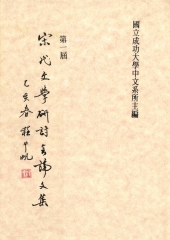 國立成功大學中文系所主編
第一屆
宋代文學研討會論文集
乙亥春